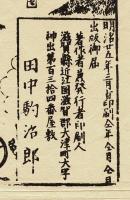 明治廿五年三月印刷仝年仝月仝日
出版御届
著作者兼発行者印刷人
滋賀縣近江國滋賀郡大津町大字
神出第百三拾四番屋敷
田中駒治郎